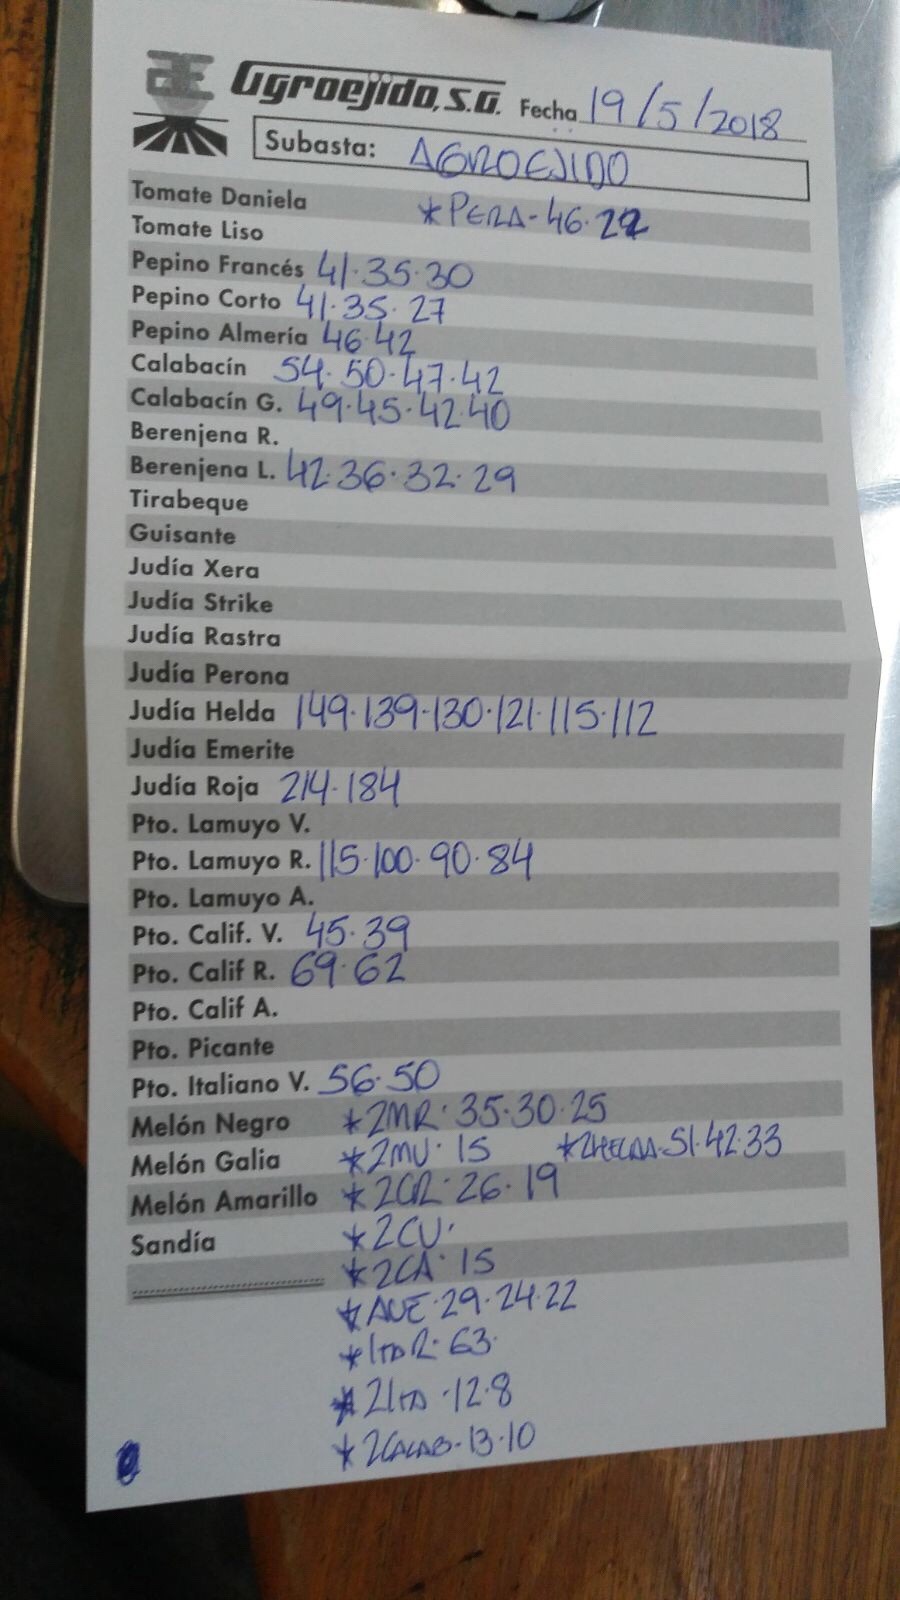 Agroejido, S.A. Fecha 19/5/2018
Subasta: AGROEJIDO
Tomate Daniela *PERA-46·22
Tomate Liso
Pepino Francés 41·35·30
Pepino Corto 41·35·27
Pepino Almería 46·42
Calabacín 54·50·47·42
Calabacín G. 49·45·42·40
Berenjena R.
Berenjena L. 42·36·32·29
Tirabeque
Guisante
Judía Xera
Judía Strike
Judía Rastra
Judía Perona
Judía Helda 149·139·130·121·115·112
Judía Emerite
Judía Roja 214·184
Pto. Lamuyo V.
Pto. Lamuyo R. 115·100·90·84
Pto. Lamuyo A.
Pto. Calif. V. 45·39
Pto. Calif R. 69·62
Pto. Calif A.
Pto. Picante
Pto. Italiano V. 56·50
Melón Negro *2MR·35·30·25
Melón Galia *2MV·15 *2HELDA·51·42·33
Melón Amarillo *2CR·26·19
Sandía *2CV·
*2CA·15
*AVE·29·24·22
*ITAR·63·
*2ITA·12·8
*2CALAB·13·10